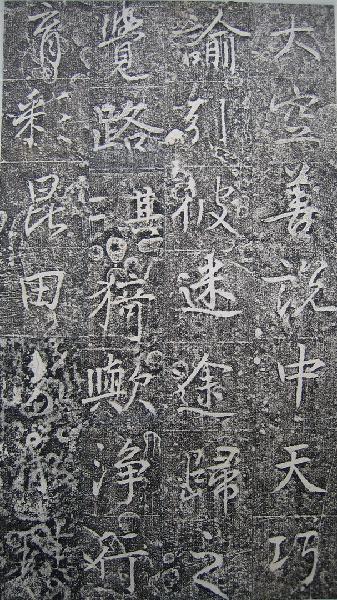 大空善說中天巧
諭引彼迷途歸之
覺路其二猗歟淨行
育彩昆田